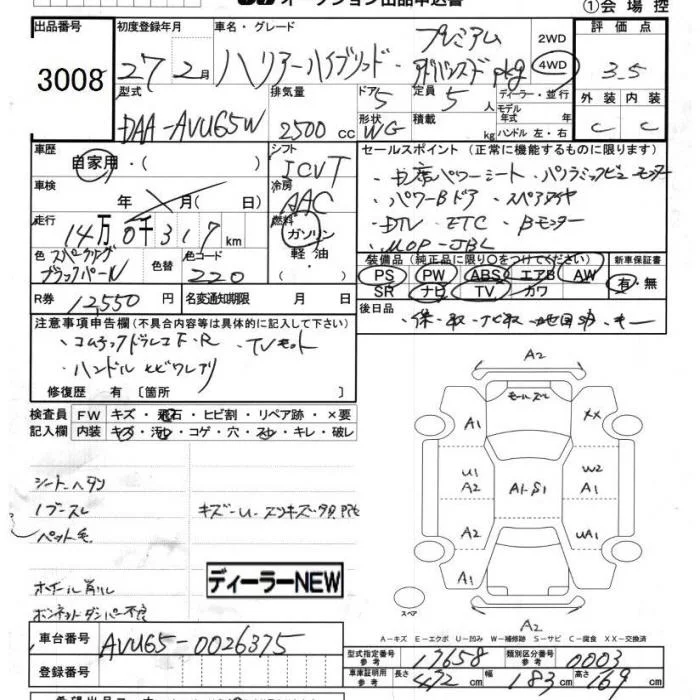 オークション出品申込書
①会場控
出品番号
3008
初度登録年月
27 2月
車名・グレード
ハリアーハイブリッド・
プレミアム
アドバンスドpkg
2WD
4WD
評価点
3.5
外装 内装
C C
型式
DAA-AVU65W
排気量
2500 cc
ドア
5
形状
WG
定員
5 人
積載
kg
ディーラー・並行
モデル
年式 年
ハンドル 左・右
車歴
自家用・( )
シフト
ICVT
車検
年 月( 日)
冷房
AAC
走行
14万0千317km
燃料
ガソリン
軽油
色 スパークリング
ブラックパール
色替
色コード
220
R券 12,550円
名変通知期限 月 日
セールスポイント(正常に機能するものに限ります)
・パワーシート・パノラミックビューモニター
・パワーBドア・スペアタイヤ
・DTV・ETC・Bモニター
・MOP-JBL
装備品(純正品に限り○をつけてください)
PS PW ABS エアB AW
SR ナビ TV カワ
新車保証書
有・無
後日品
・保・取・ナビ取
注意事項申告欄(不具合内容等は具体的に記入して下さい)
・コムテックドラレコF・R ・TVキット
・ハンドルヒビワレアリ
修復歴 有〔箇所 〕
検査員
記入欄
FW キズ・飛石・ヒビ割・リペア跡・×要
内装 キズ・汚れ・コゲ・穴・スレ・キレ・破レ
シートヘタリ
ノブスレ
ペット毛
キズ・U・スリキズ
ホイール削レ
ボンネットダンパー不良
ディーラーNEW
A2
モールスレ
A1
XX
U1
A2
A1・S1
W2
A1
A2
UA1
A1
スペア
A2
A-キズ E-エクボ U-凹み W-補修跡 S-サビ C-腐食 XX-交換済
車台番号
AVU65-0026375
登録番号
型式指定番号
参考
17658
類別区分番号
参考
0003
車庫証明用
参考
長さ 472cm
幅 183cm
高さ 169cm